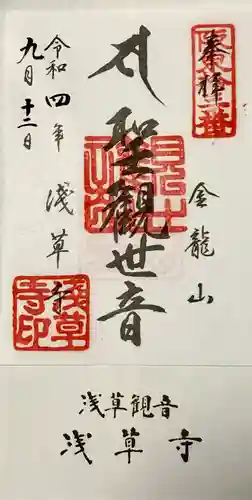 奉拝
金龍山
聖觀世音
令和四年 淺草寺
九月十二日
淺草寺印
浅草観音
浅草寺